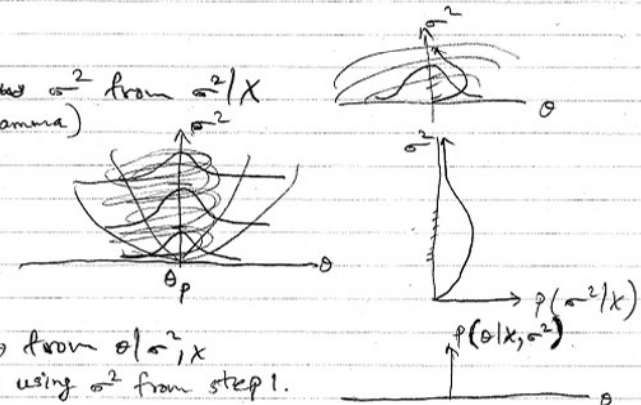 σ²
σ² from σ²|X
θ
amma)
σ²
σ²
θ
θp
p(σ²|X)
θ from θ|σ², X
p(θ|X, σ²)
using σ² from step 1.
θ